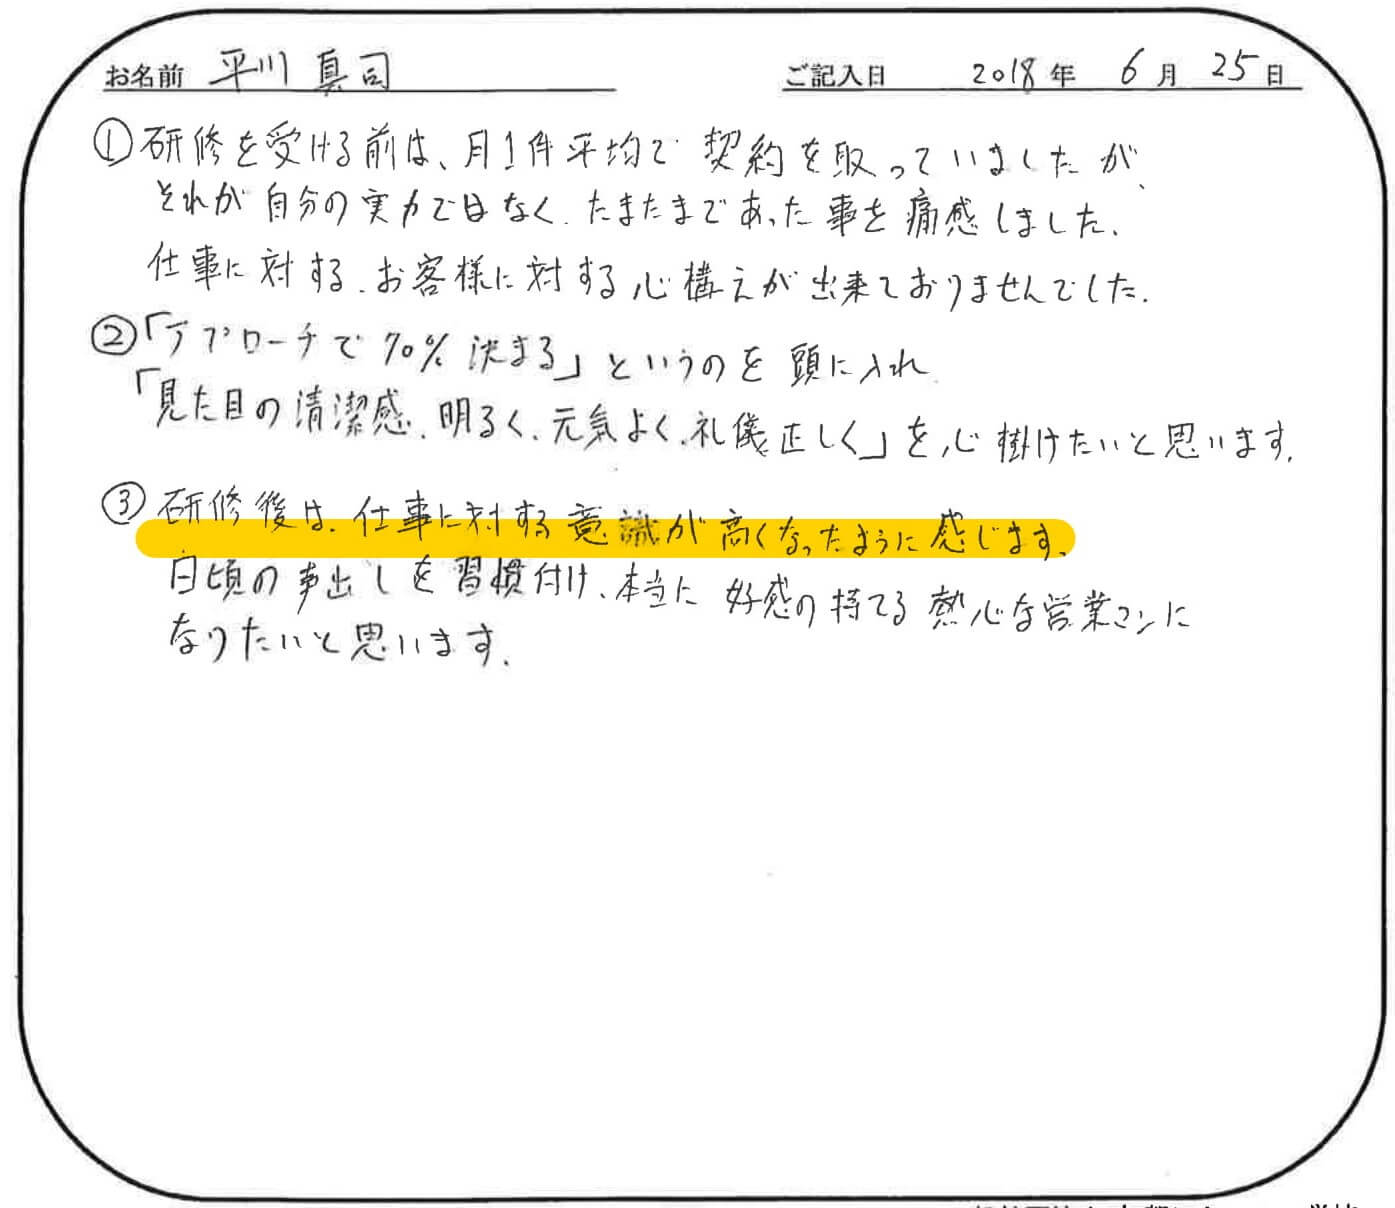 お名前 平川 真司 ご記入日 2018年 6月 25日
①研修を受ける前は、月1件平均で 契約を取っていましたが、
それが自分の実力ではなく、たまたまであった事を痛感しました。
仕事に対する、お客様に対する心構えが出来ておりませんでした。
②「アプローチで70%決まる」というのを頭に入れ
「見た目の清潔感、明るく、元気よく、礼儀正しく」を心掛けたいと思います。
③研修後は、仕事に対する意識が高くなったように感じます。
日頃の声出しを習慣付け、本当に好感の持てる熱心な営業マンに
なりたいと思います。